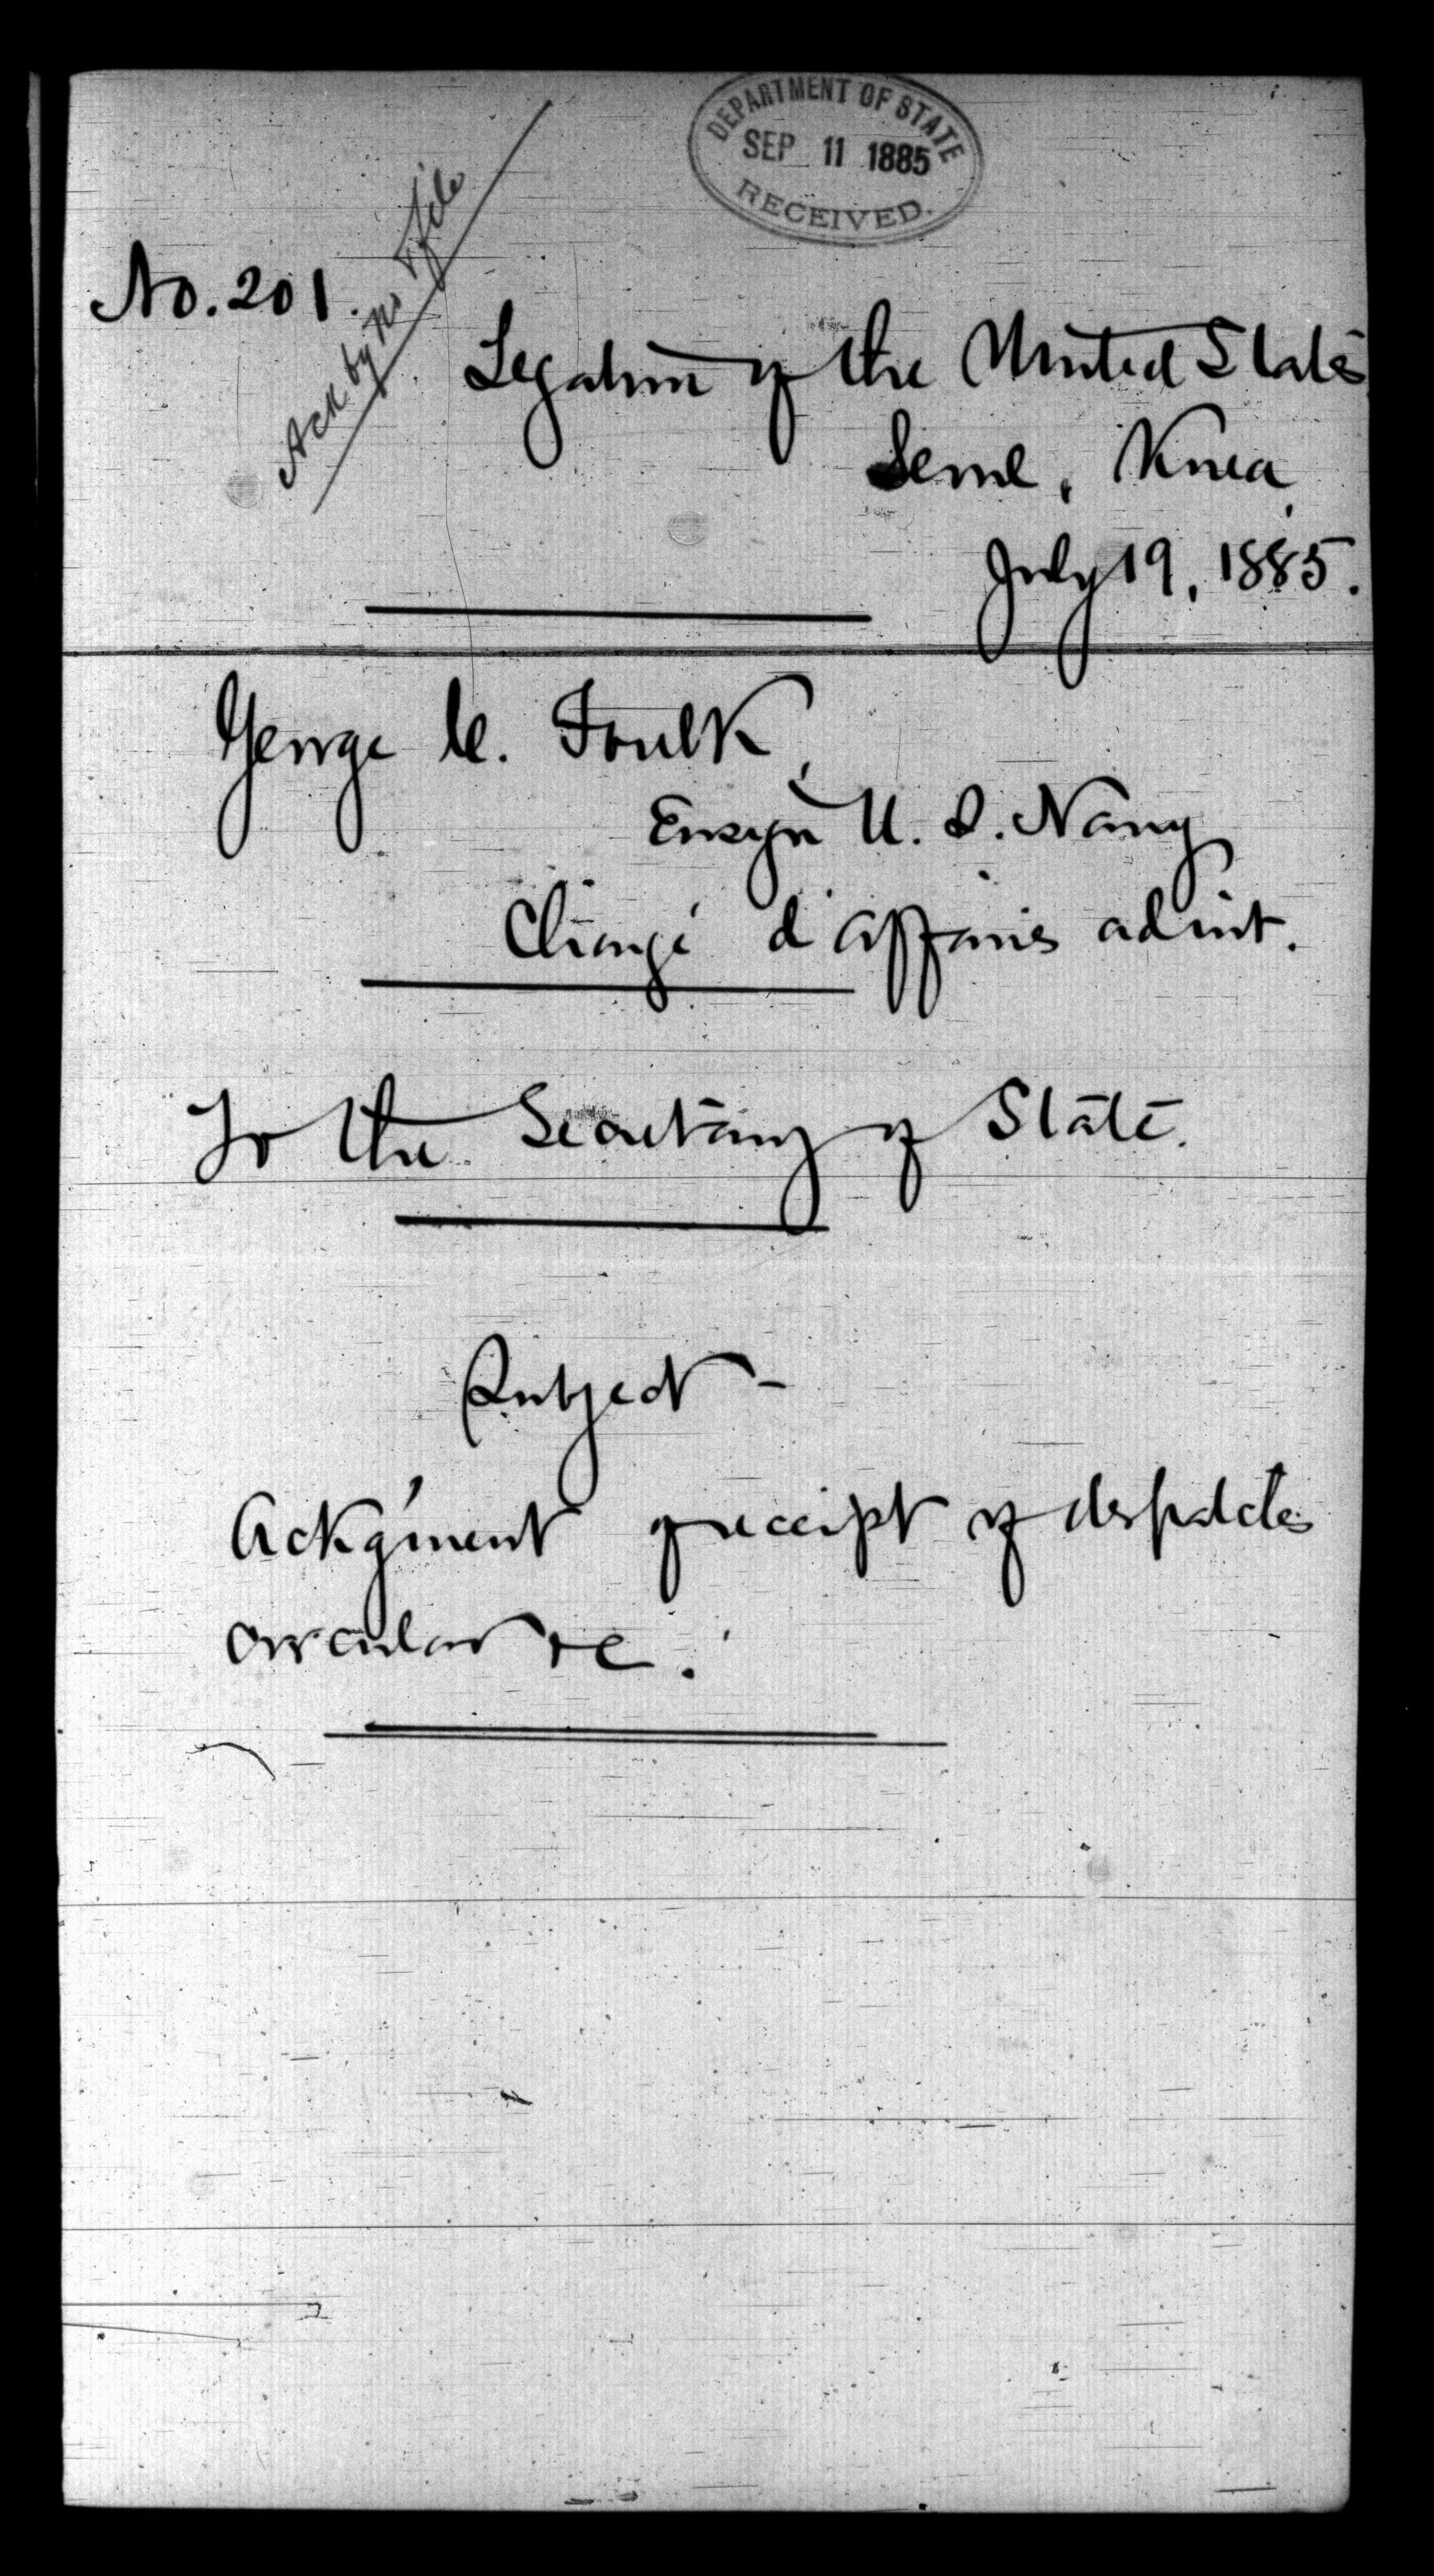 DEPARTMENT OF STATE
SEP 11 1885
RECEIVED.
No. 201.
Ack by no & file
Legation of the United States
Seoul, Korea,
July 19, 1885.
George C. Foulk,
Ensign U. S. Navy
Chargé d'affaires ad int.
To the Secretary of State.
Subject -
Ackg'ment of receipt of despatches
circular &c.